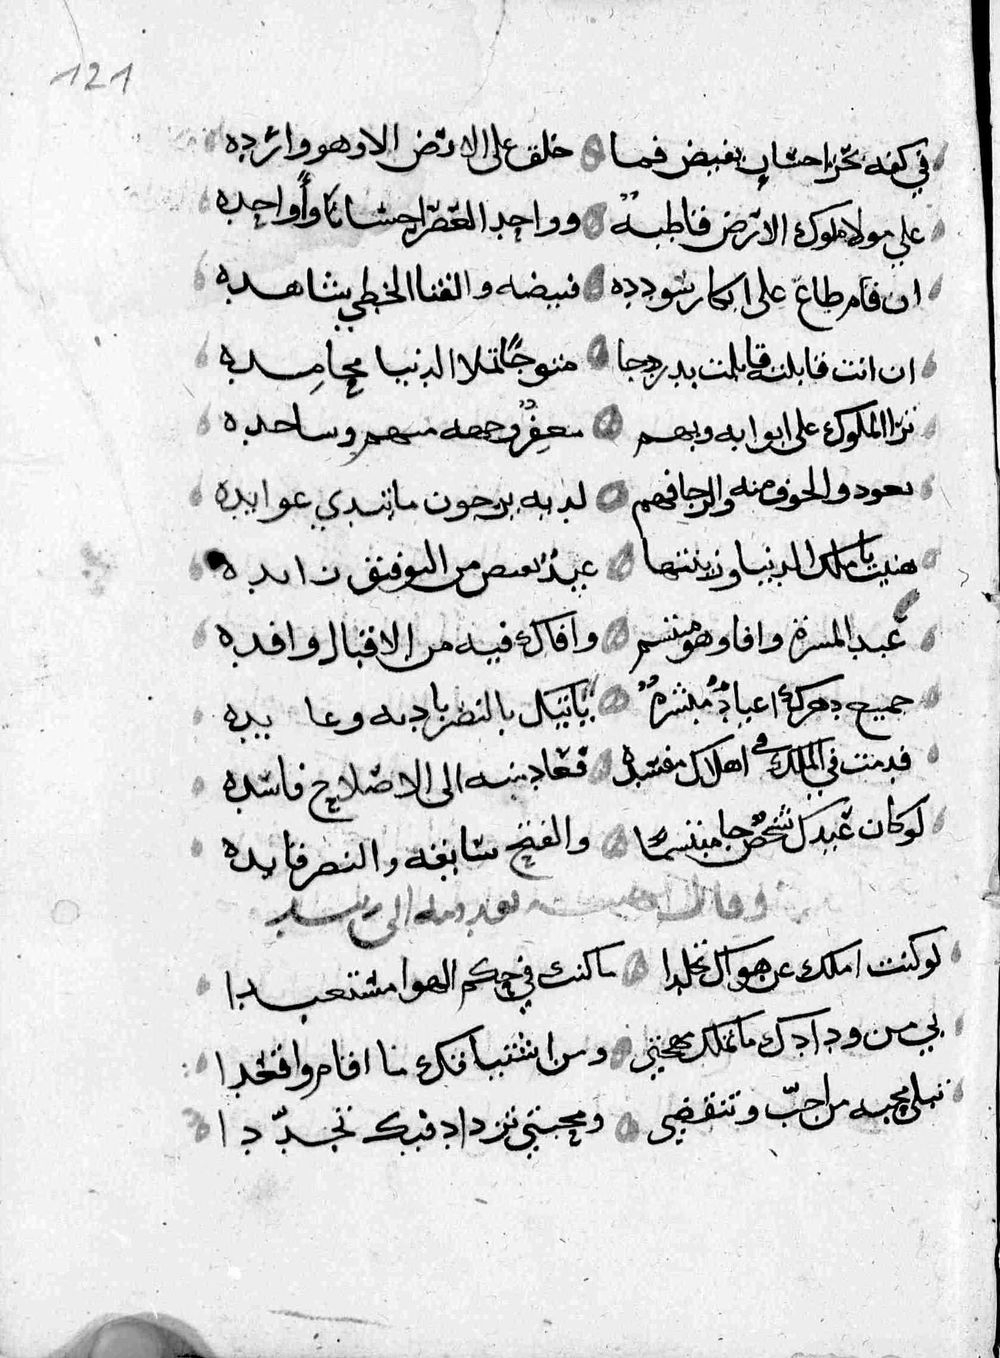 121
في كفه بحر احسان يفيض فما خلق على الارض الا وهو وارده
على مولا ملوك الارض قاطبة وواحد العصر احسانا وأواحده
ان قام طاغ على انكار سودده فبيضه والقنا الخطي شاهده
ان انت قابلته قابلت بدر دجا متوجًا تملا الدنيا محامده
ترا الملوك على ابوابه وبهم معفر وجهه منهم وساجده
والخوف منه والرجا فهم لديه يرجون ما تبدي عوايده
هنيت يا ملك الدنيا وزينتها عيدٌ من التوفيق زايده
عيد المسرة وافا وهو مبتسم وافاك فيه من الاقبال وافده
جميع دهرك اعياد مبشرة ياتيك بالنصر باديه وعا يده
قدمت في الملك في اهلاك مفسده فعاد منه الى الاصلاح فاسده
لو كان عيدك شخص جا مبتسما والفتح سابقه والنصر قايده
وقال الى
لو كنت املك عن هواك تجلدا ما كنت في حكم الهوا مستعبدا
بي من ودادك ما تملك مهجتي ومن اشتياقك ما اقام واقعدا
تبلى محبه من احبّ وتنقضي ومحبتي تزداد فيك تجدّدا